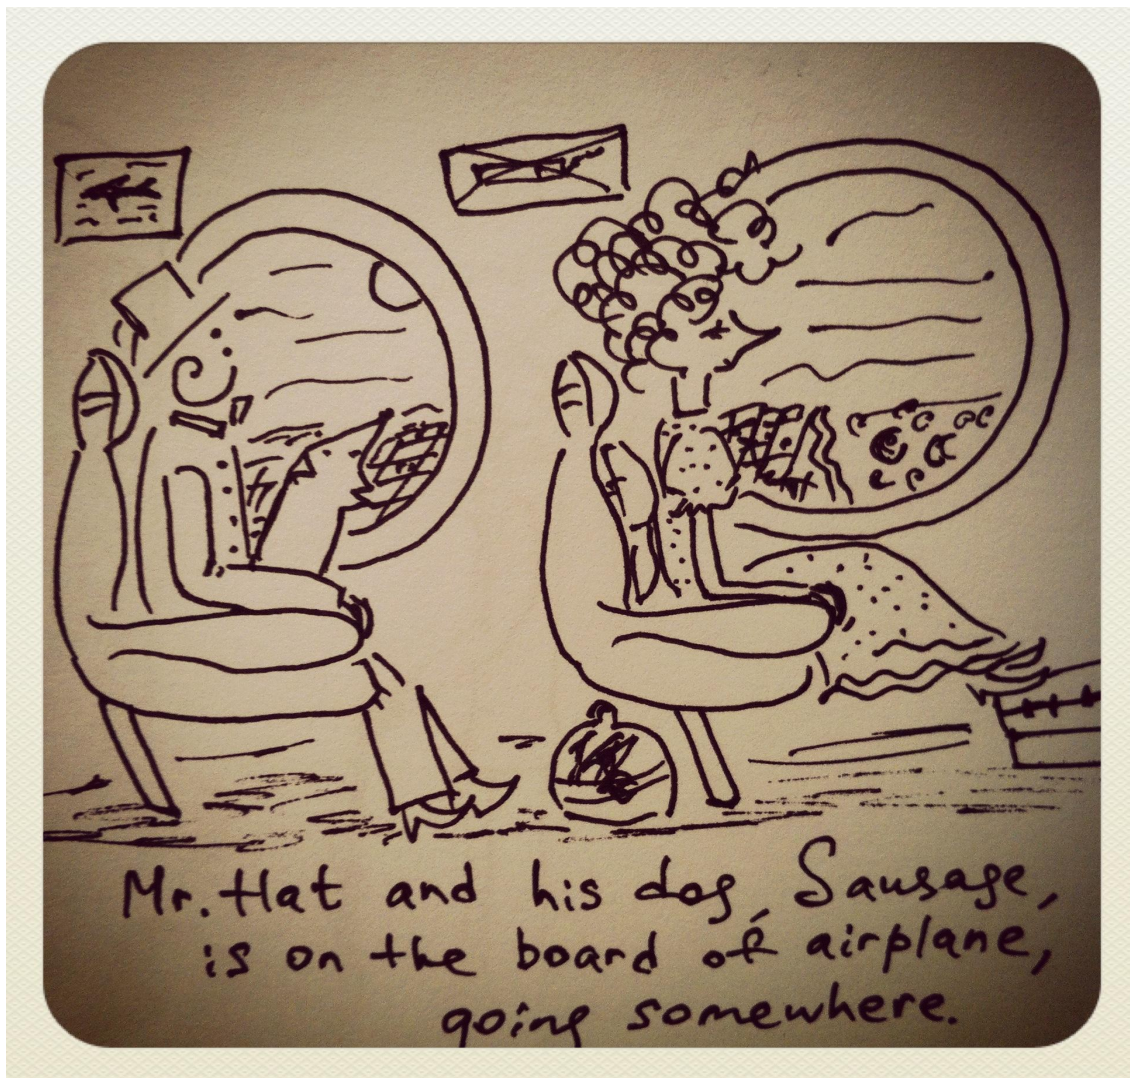 Mr. Hat and his dog, Sausage,
is on the board of airplane,
going somewhere.